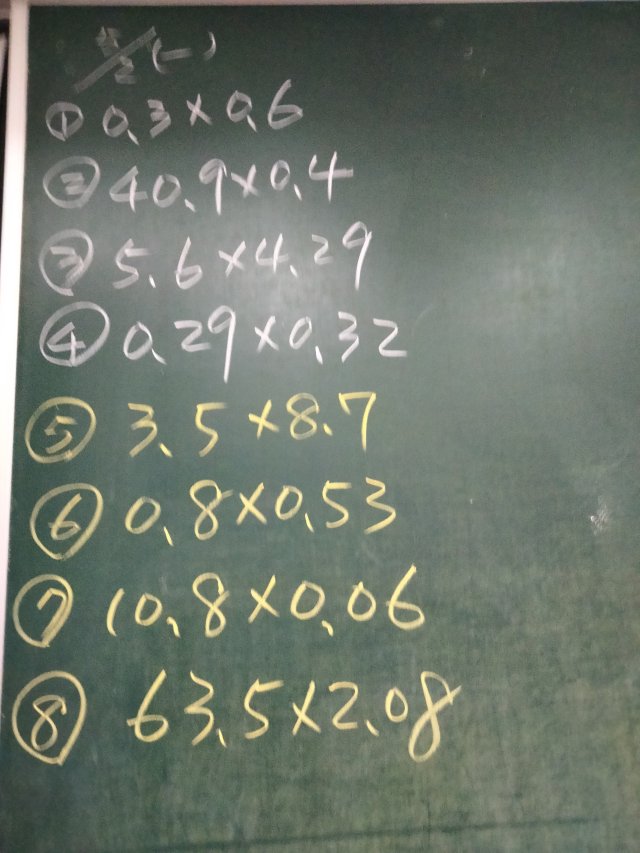 5/2(一)
① 0.3×0.6
② 40.9×0.4
③ 5.6×4.29
④ 0.29×0.32
⑤ 3.5×8.7
⑥ 0.8×0.53
⑦ 10.8×0.06
⑧ 63.5×2.08